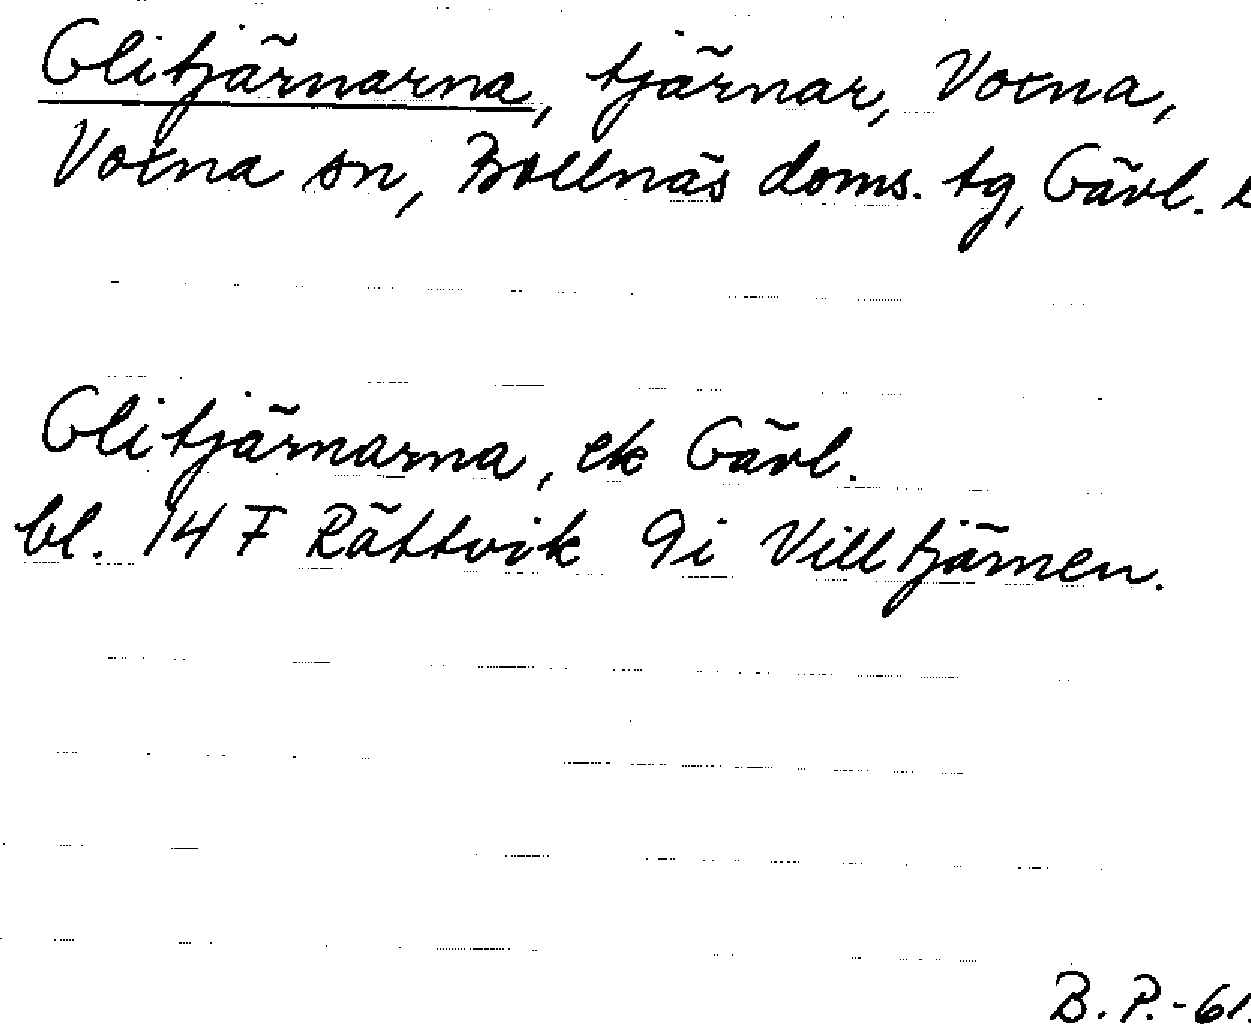 Glitjärnarna, tjärnar, Voxna,
Voxna sn, Bollnäs doms. tg, Gävl.
Glitjärnarna, ek Gävl.
bl. 14 F Rättvik 9i Villtjärnen.
B. P. - 61.